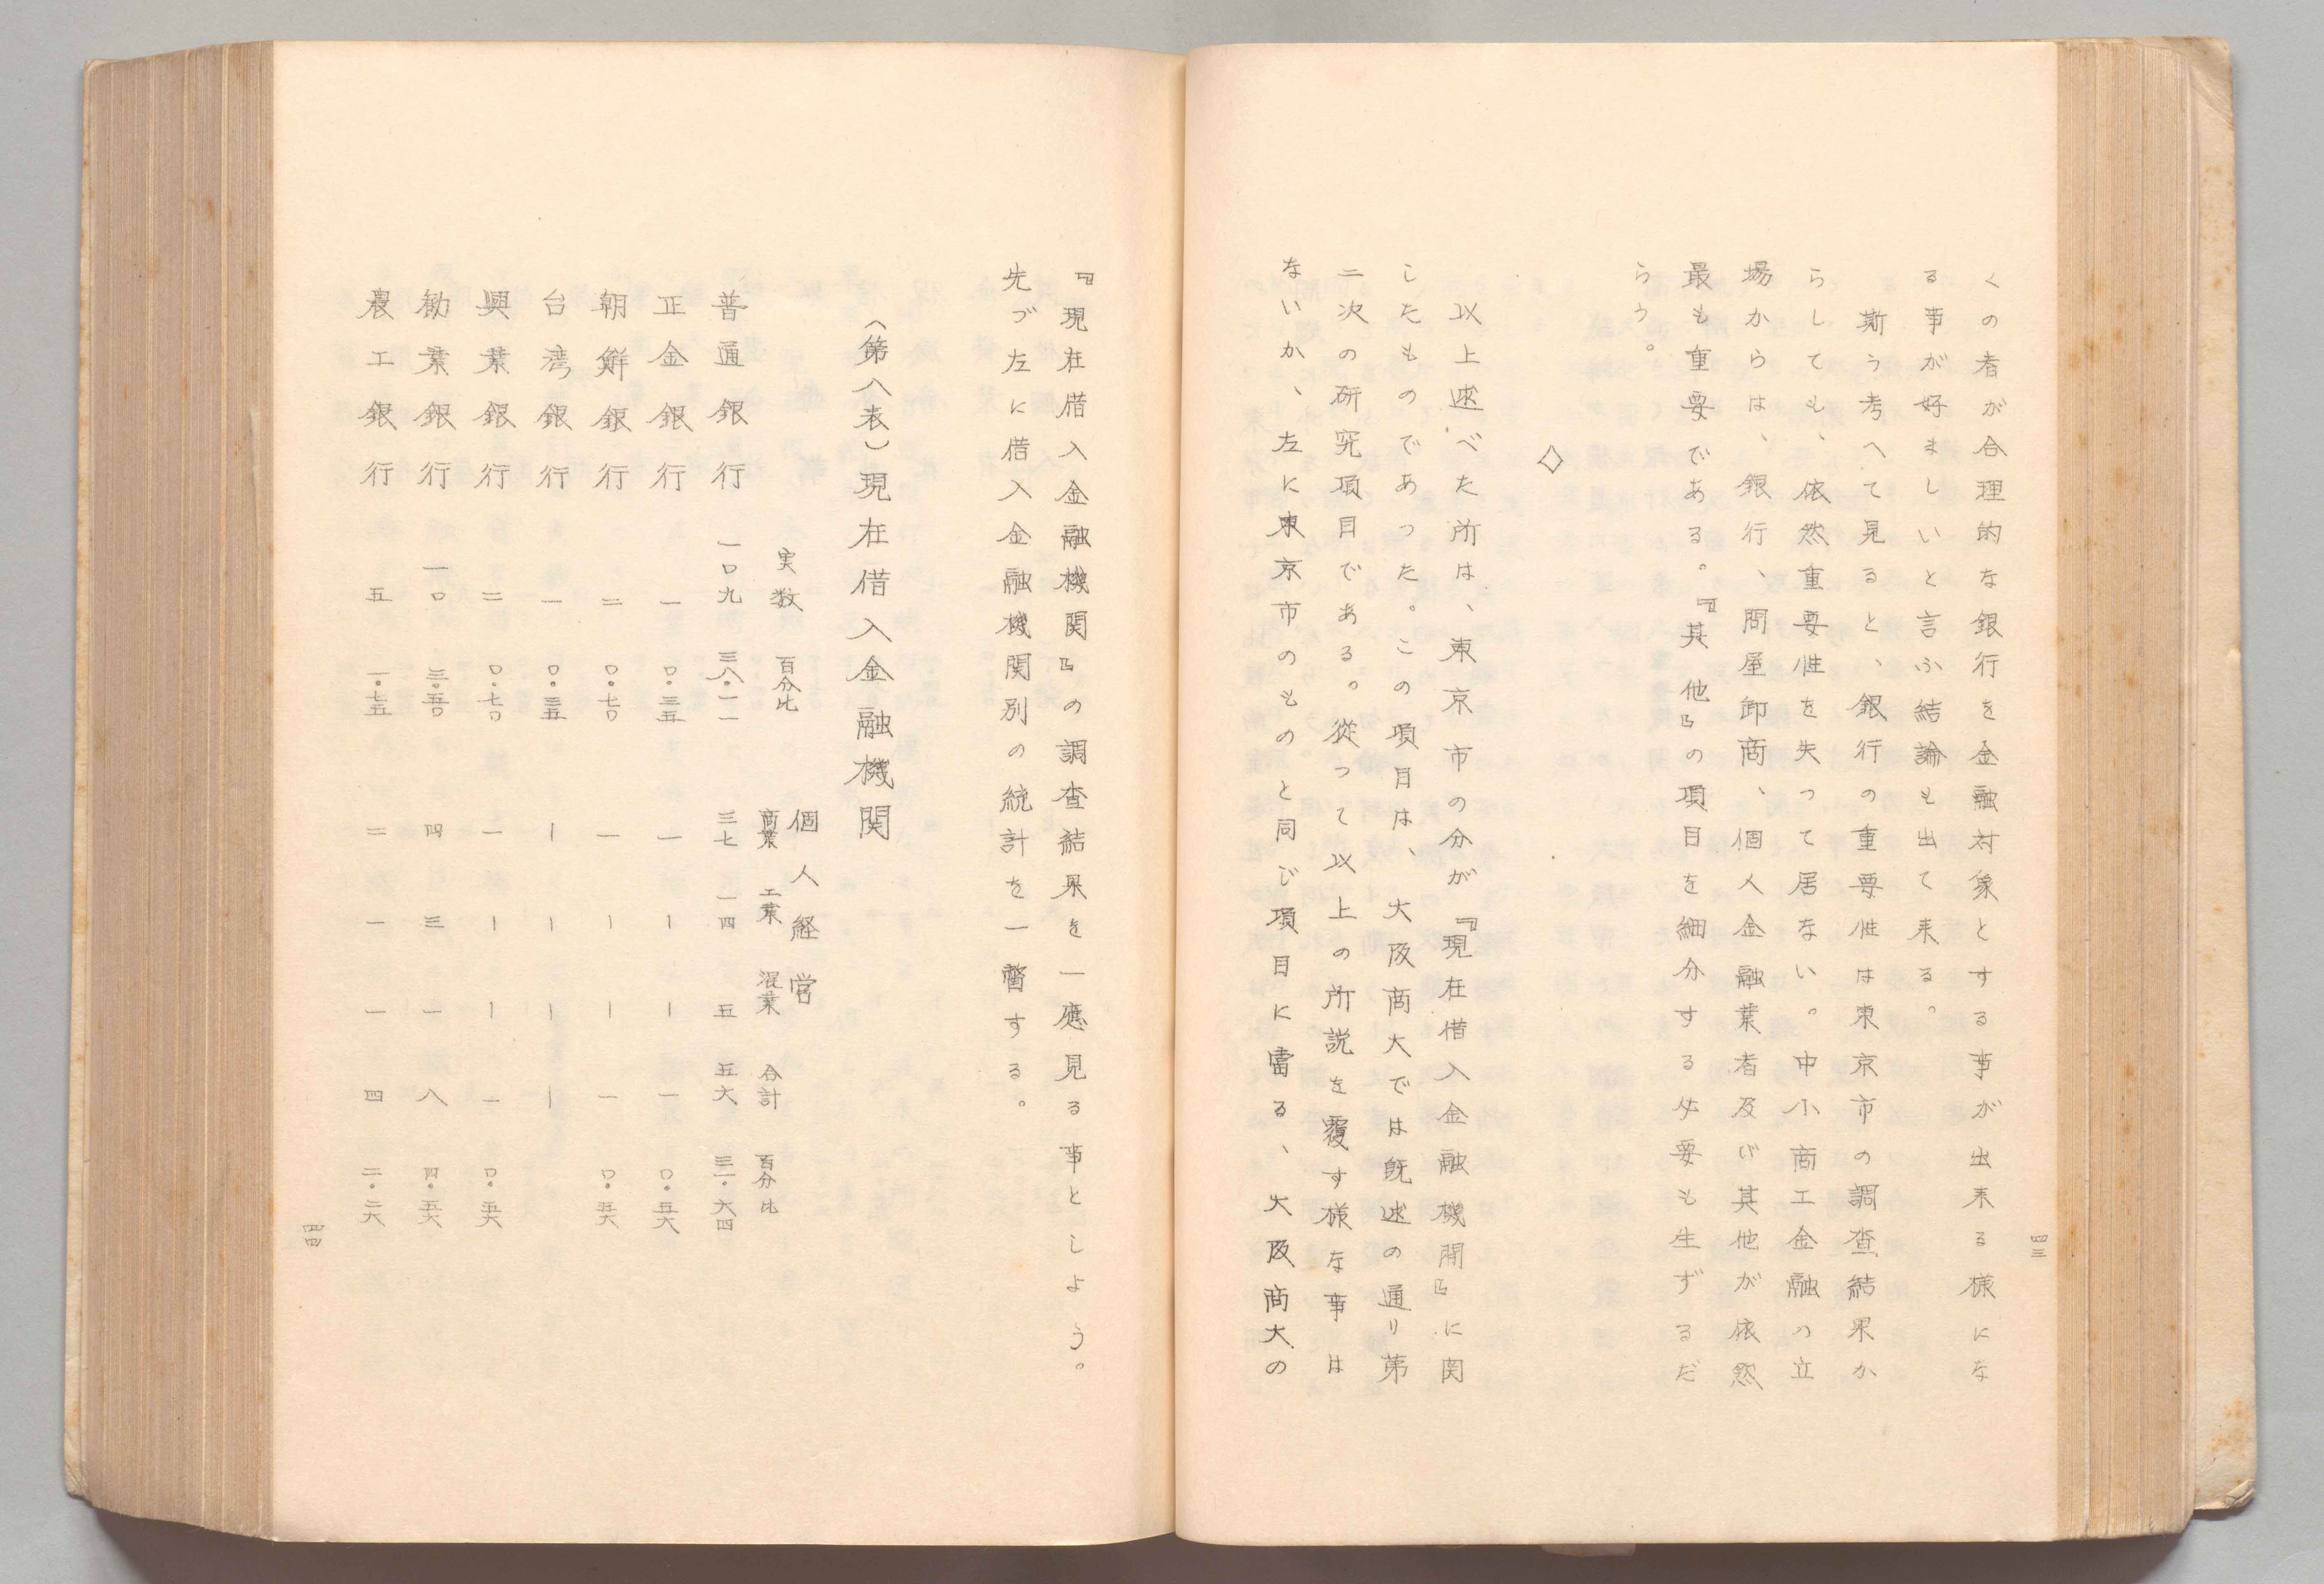 くの者が合理的な銀行を金融対象とする事が出来る様にな
る事が好ましいと言ふ結論も出て来る。
斯う考へて見ると、銀行の重要性は東京市の調査結果か
らしても、依然重要性を失って居ない。中小商工金融の立
場からは、銀行、問屋卸商、個人金融業者及び其他が依然
最も重要である。『其他』の項目を細分する必要も生ずるだ
らう。
◇
以上述べた所は、東京市の分が『現在借入金融機関』に関
したものであった。この項目は、大阪商大では既述の通り第
二次の研究項目である。從って以上の所説を覆す様な事は
ないか、左に東京市のものと同じ項目に當る、大阪商大の
四三
『現在借入金融機関』の調査結果を一應見る事としよう。
先づ左に借入金融機関別の統計を一瞥する。
(第八表)現在借入金融機関
個人経営
実数 百分比 商業 工業 混業 合計 百分比
普通銀行 一〇九 三八・一一 三七 一四 五 五六 三一・六四
正金銀行 一 〇・三五 一 ー ー 一 〇・五六
朝鮮銀行 二 〇・七〇 一 ー ー 一 〇・五六
台湾銀行 一 〇・三五 ー ー ー ー
興業銀行 二 〇・七〇 一 ー ー 一 〇・五六
勧業銀行 一〇 三・五〇 四 三 一 八 四・五六
農工銀行 五 一・七五 二 一 一 四 二・二六
四四